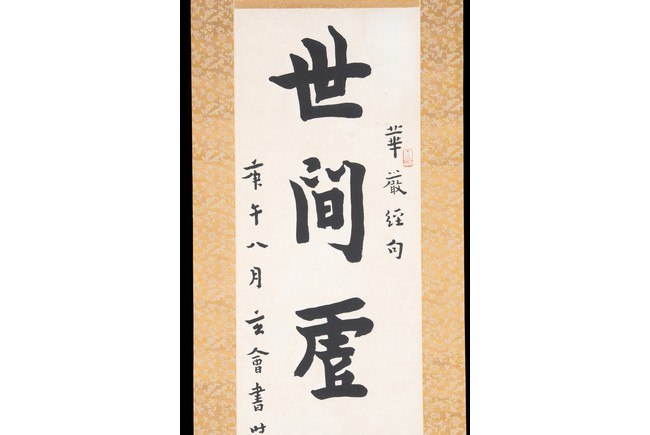 華嚴經句
世間虛
庚午八月玄會書時